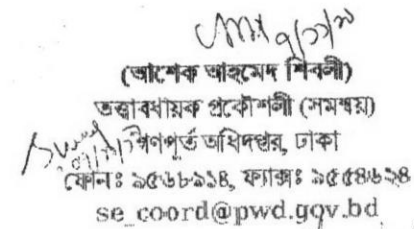 (আশেক আহমেদ শিবলী)
তত্ত্বাবধায়ক প্রকৌশলী (সমন্বয়)
গণপূর্ত অধিদপ্তর, ঢাকা
ফোনঃ ৯৫৬৮৯১৪, ফ্যাক্সঃ ৯৫৫৪৬২৪
se_coord@pwd.gov.bd